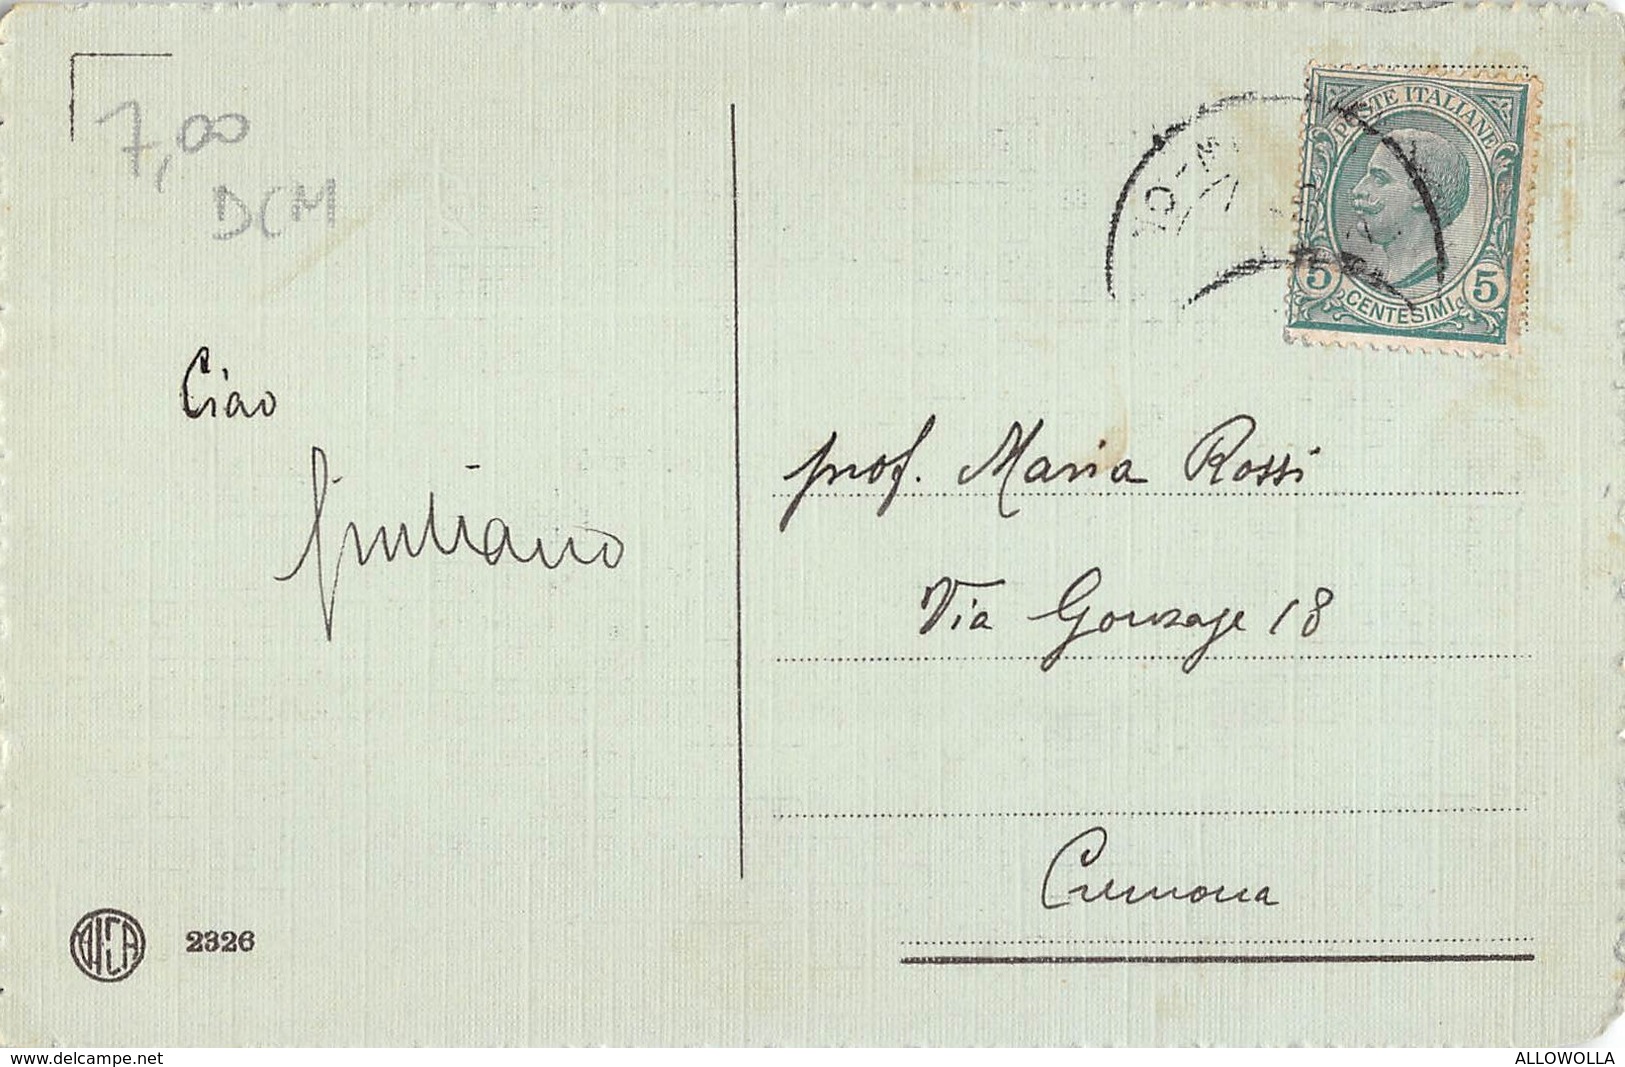 7,00
DCM
POSTE ITALIANE
5 CENTESIMI 5
Ciao
Giuliano
prof. Maria Rossi
Via Gonzaga 18
Cremona
2326
www.delcampe.net
ALLOWOLLA